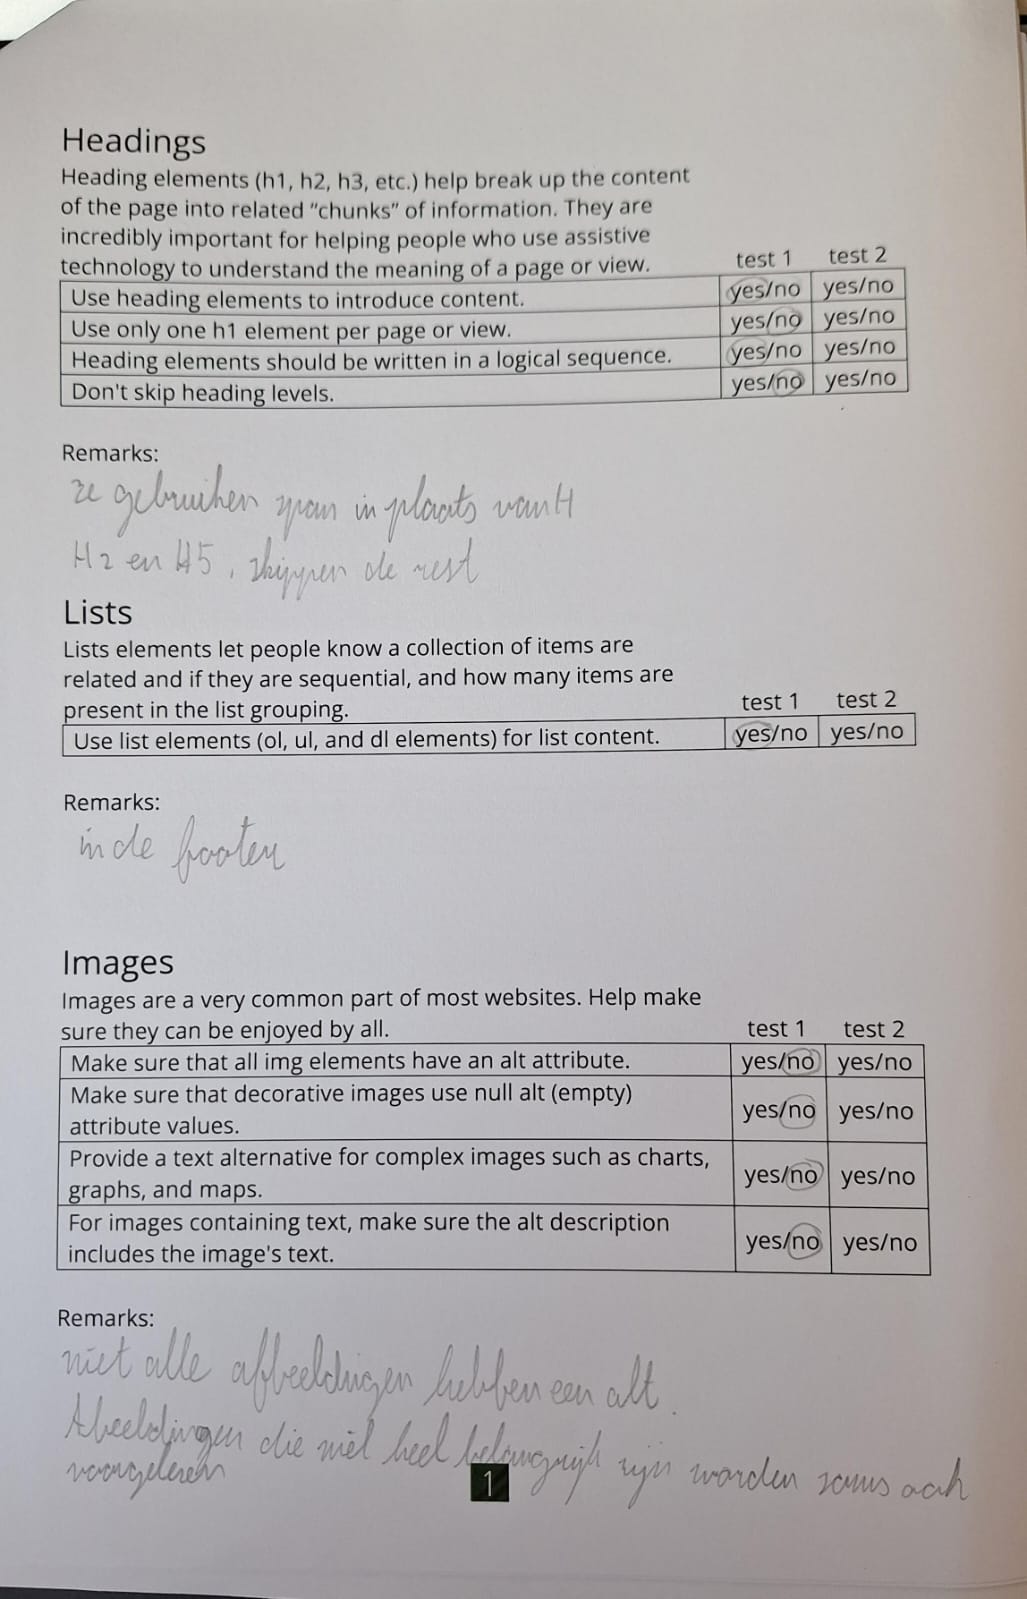 Headings
Heading elements (h1, h2, h3, etc.) help break up the content
of the page into related “chunks” of information. They are
incredibly important for helping people who use assistive
technology to understand the meaning of a page or view. test 1 test 2
Use heading elements to introduce content. yes/no yes/no
Use only one h1 element per page or view. yes/no yes/no
Heading elements should be written in a logical sequence. yes/no yes/no
Don't skip heading levels. yes/no yes/no
Remarks:
ze gebruiken span in plaats van H
H2 en H5, skippen de rest
Lists
Lists elements let people know a collection of items are
related and if they are sequential, and how many items are
present in the list grouping. test 1 test 2
Use list elements (ol, ul, and dl elements) for list content. yes/no yes/no
Remarks:
in de footer
Images
Images are a very common part of most websites. Help make
sure they can be enjoyed by all. test 1 test 2
Make sure that all img elements have an alt attribute. yes/no yes/no
Make sure that decorative images use null alt (empty)
attribute values. yes/no yes/no
Provide a text alternative for complex images such as charts,
graphs, and maps. yes/no yes/no
For images containing text, make sure the alt description
includes the image's text. yes/no yes/no
Remarks:
niet alle afbeeldingen hebben een alt.
Abeeldingen die niet heel belangrijk zijn worden soms ook
voorgelezen
1